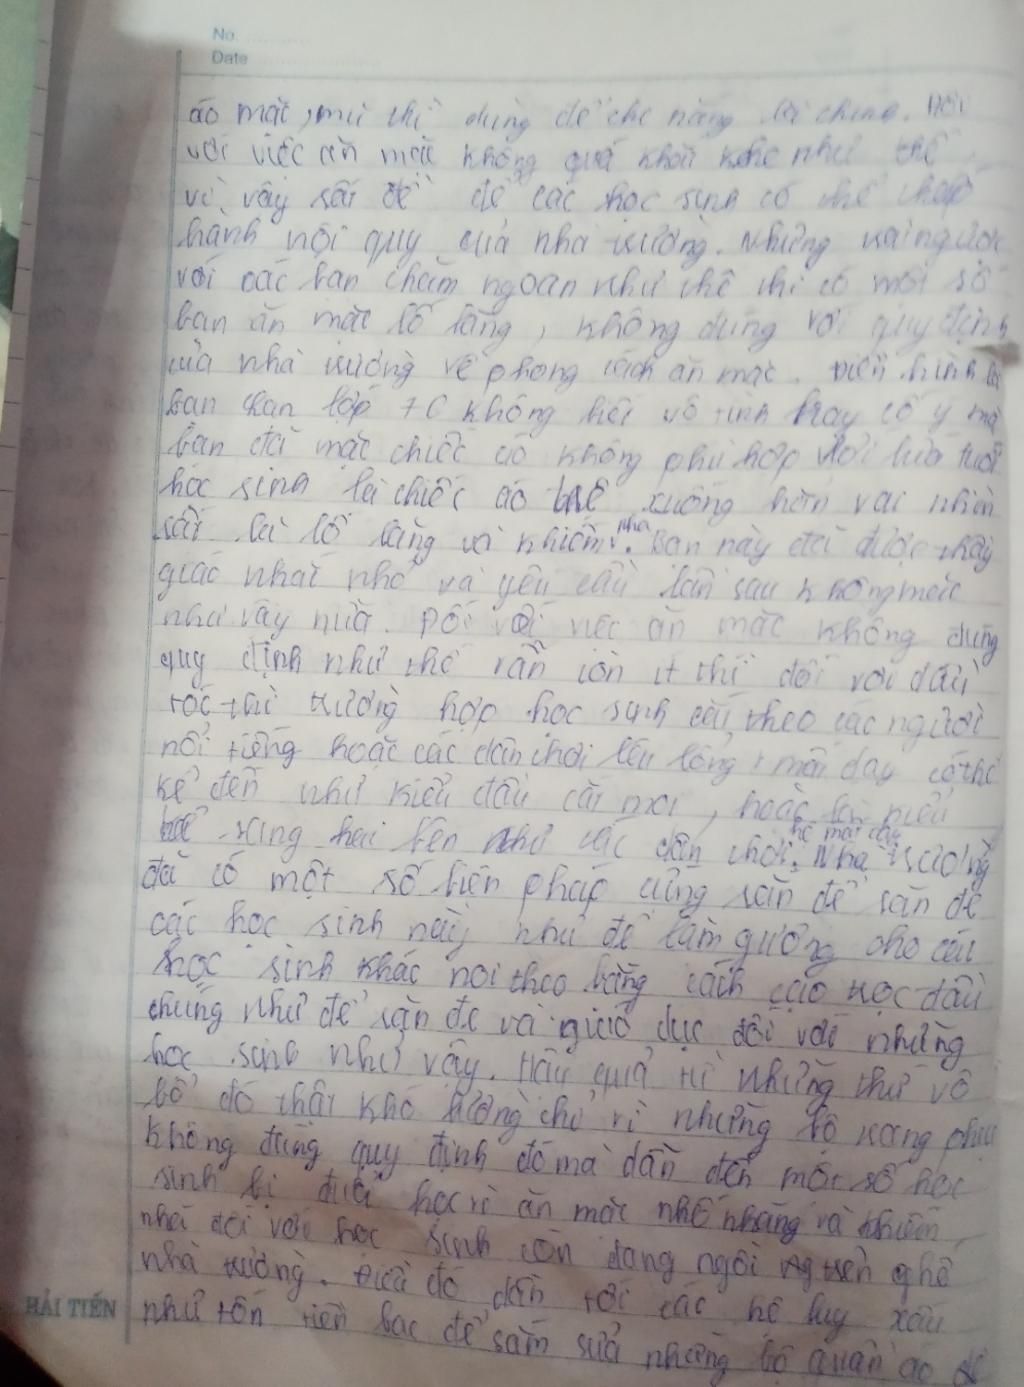 No.
Date
áo mặc, mũ thì dùng để che nắng là chung. Đối
với việc ăn mặc không quá khắt khe như thế
vì vậy rất dễ để các học sinh có thể chấp
hành nội quy của nhà trường. Nhưng trái ngược
với các bạn chăm ngoan như thế thì có một số
bạn ăn mặc lố lăng, không đúng với quy định
của nhà trường về phong cách ăn mặc. Điển hình là
bạn lớp 7C không biết vô tình hay cố ý mà
bạn đã mặc chiếc áo không phù hợp với lứa tuổi
học sinh là chiếc áo trễ xuống hơn vai nhìn
rất là lố lăng và khiếm nhã. Bạn này đã được thầy
giáo nhắc nhở và yêu cầu lần sau không mặc
như vậy nữa. Đối với việc ăn mặc không đúng
quy định như thế vẫn còn ít thì đối với đầu
tóc thì trường hợp học sinh cắt theo các người
nổi tiếng hoặc các dân chơi lêu lổng mới đây có thể
kể đến như kiểu đầu cắt moi, hoặc là kiểu
sang hai bên như các dân chơi hổ mới đây. Nhà trường
đã có một số biện pháp cứng rắn để răn đe
các học sinh này như để làm gương cho các
học sinh khác noi theo bằng cách cạo trọc đầu
chúng như để răn đe và giáo dục đối với những
học sinh như vậy. Hậu quả từ những thứ vô
bổ đó thật khó lường chỉ vì những bộ trang phục
không đúng quy định đó mà dẫn đến một số học
sinh bị đuổi học vì ăn mặc nhố nhăng và khiếm
nhã đối với học sinh còn đang ngồi trên ghế
nhà trường. Điều đó dẫn tới các hệ lụy xấu
như tốn tiền bạc để sắm sửa những bộ quần áo đó
HẢI TIẾN